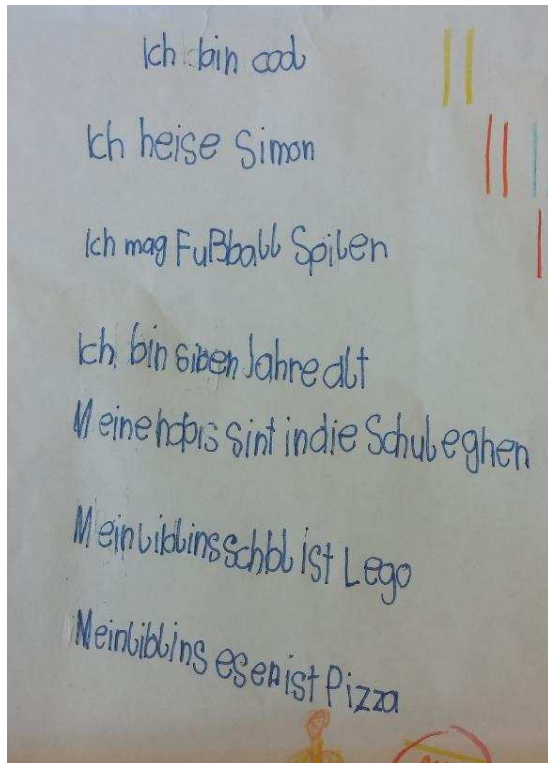 Ich bin cool
Ich heise Simon
Ich mag Fußball Spilen
Ich bin siben Jahre alt
Meine hobis sint in die Schule ghen
Mein liblins schbl ist Lego
Mein liblins esen ist Pizza